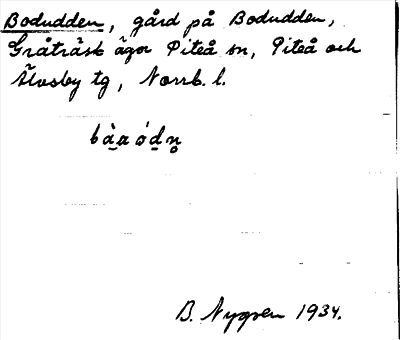 Bodudden, gård på Bodudden,
Gråträsk ägor Piteå sn, Piteå och
Älvsby tg, Norrb. l.
bà̠a ód̠n̥
B. Nygren 1934.